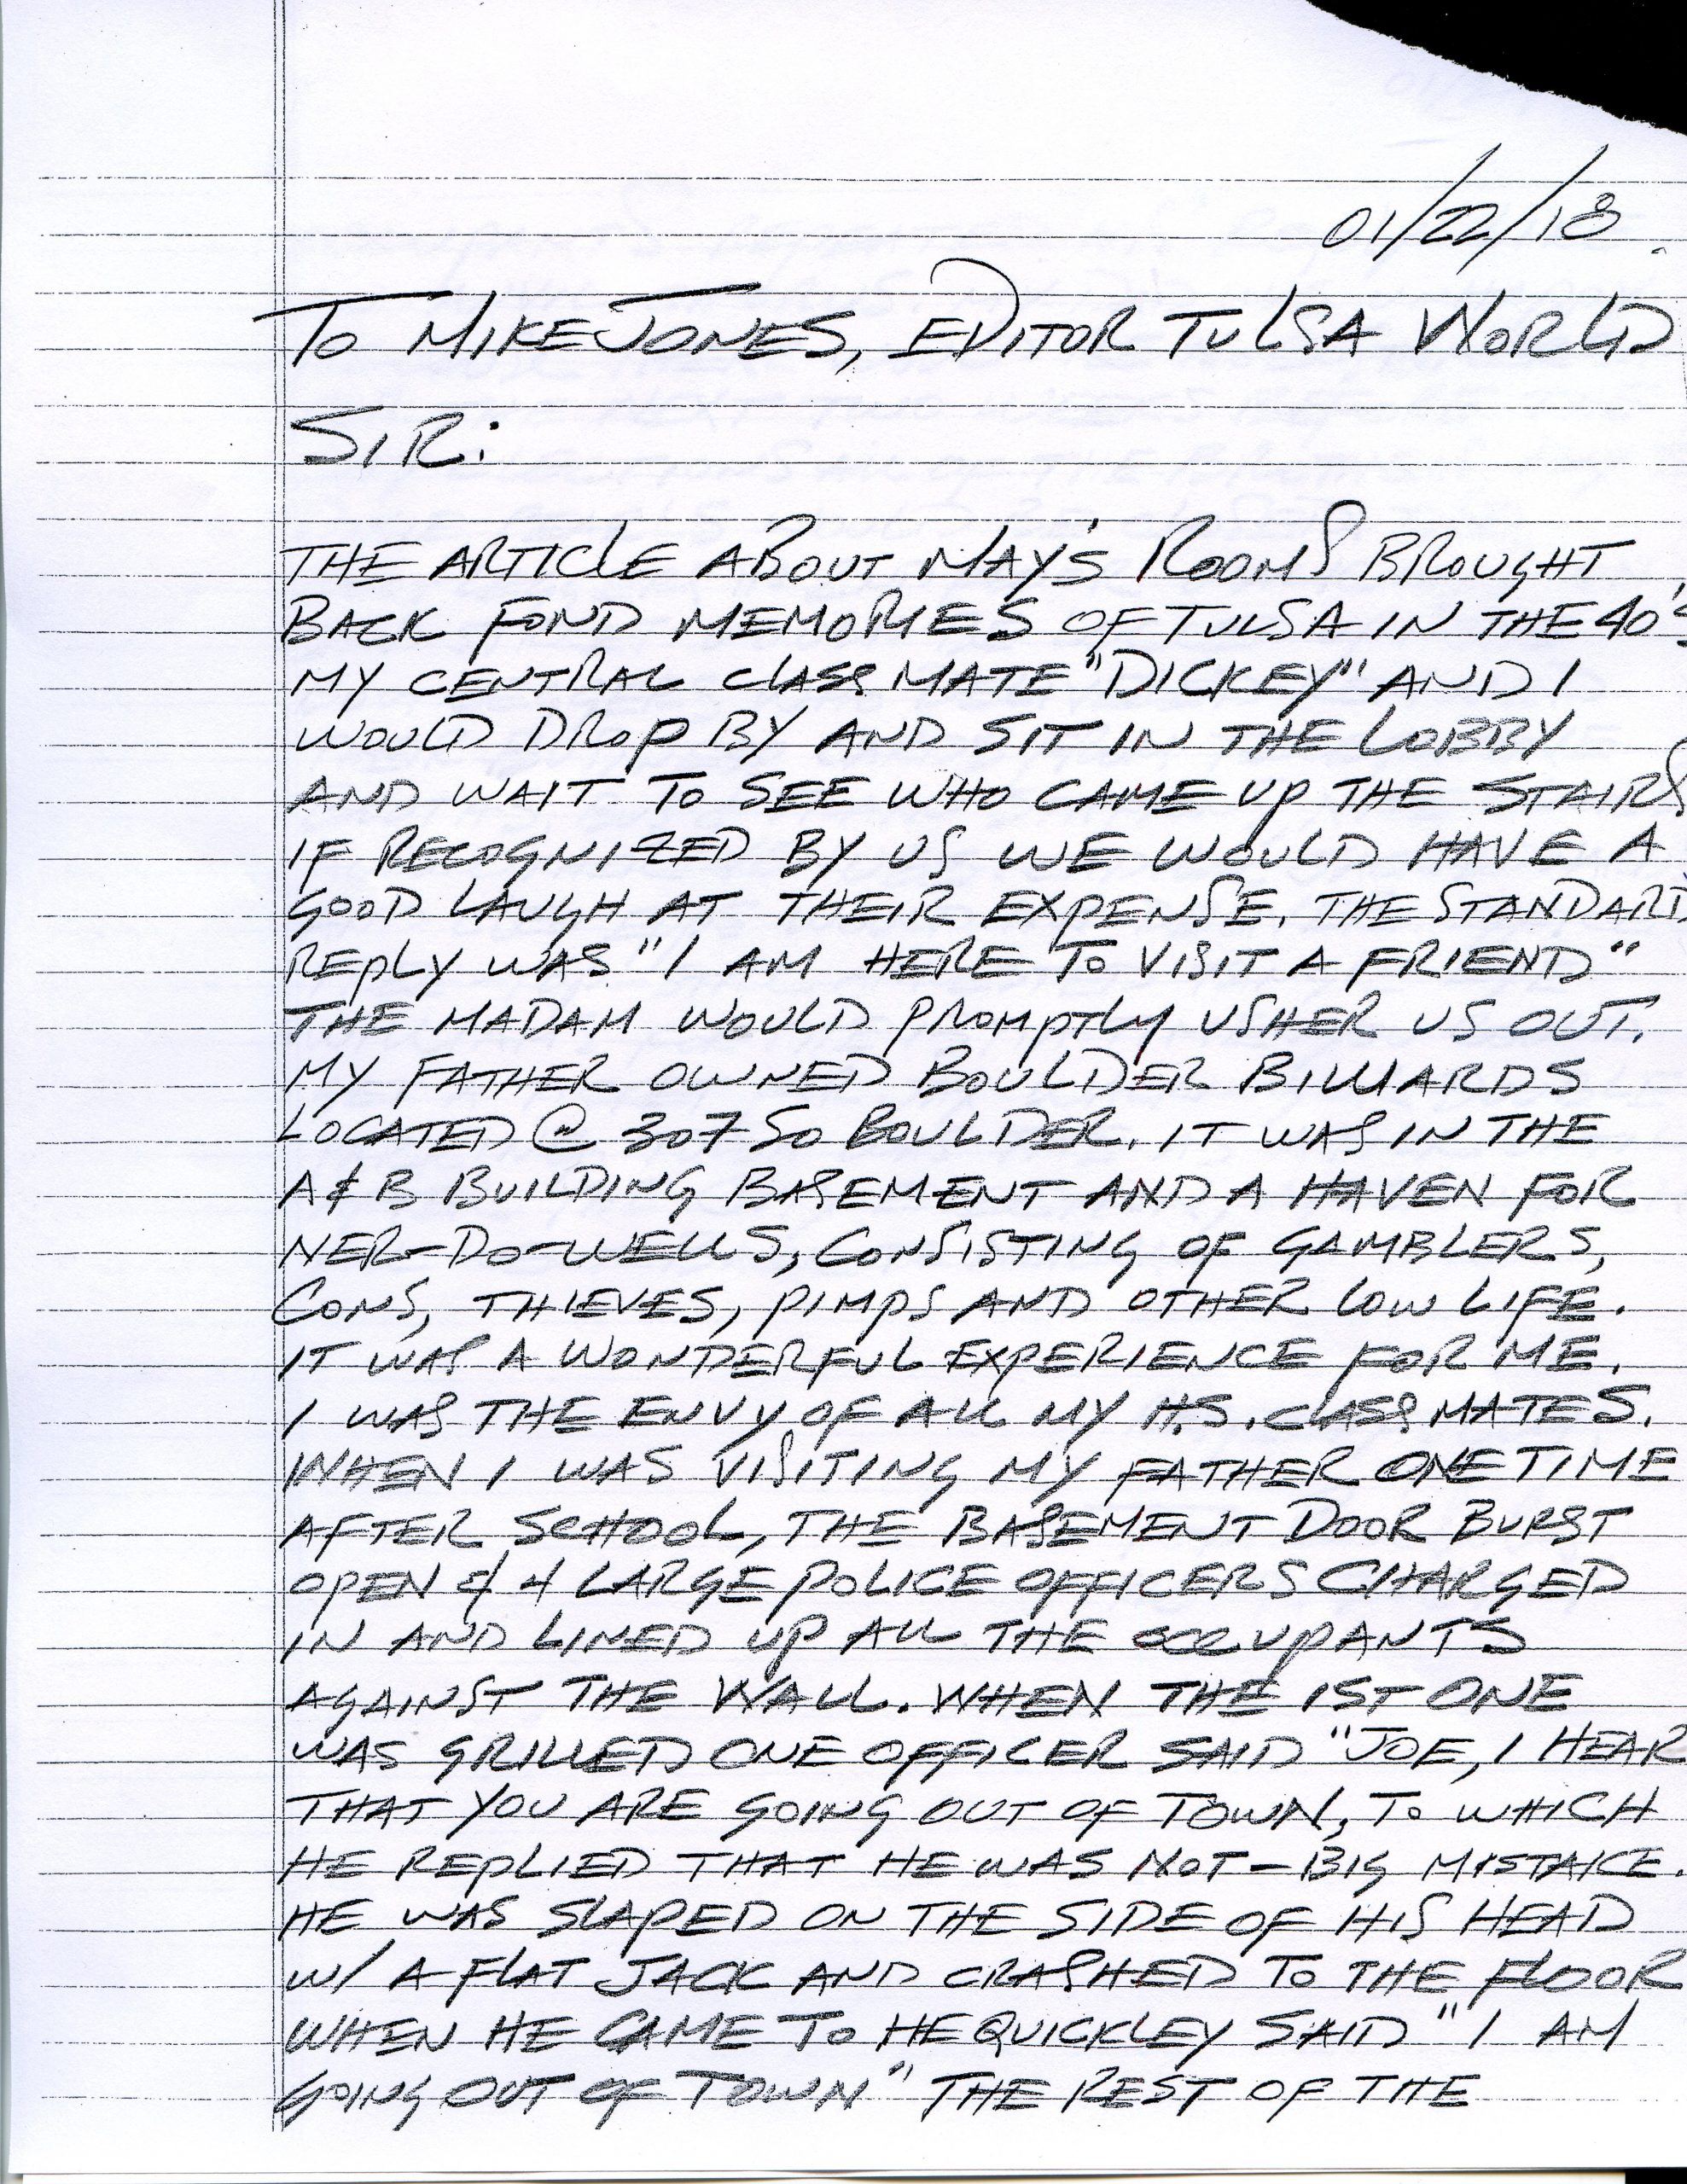 01/22/18
TO MIKE JONES, EDITOR TULSA WORLD
SIR:
THE ARTICLE ABOUT MAY'S ROOMS BROUGHT
BACK FOND MEMORIES OF TULSA IN THE 40'S
MY CENTRAL CLASS MATE "DICKEY" AND I
WOULD DROP BY AND SIT IN THE LOBBY
AND WAIT TO SEE WHO CAME UP THE STAIRS
IF RECOGNIZED BY US WE WOULD HAVE A
GOOD LAUGH AT THEIR EXPENSE. THE STANDARD
REPLY WAS "I AM HERE TO VISIT A FRIEND"
THE MADAM WOULD PROMPTLY USHER US OUT.
MY FATHER OWNED BOULDER BILLIARDS
LOCATED @ 307 SO BOULDER. IT WAS IN THE
A & B BUILDING BASEMENT AND A HAVEN FOR
NER-DO-WELLS, CONSISTING OF GAMBLERS,
CONS, THIEVES, PIMPS AND OTHER LOW LIFE.
IT WAS A WONDERFUL EXPERIENCE FOR ME.
I WAS THE ENVY OF ALL MY H.S. CLASS MATES.
WHEN I WAS VISITING MY FATHER ONE TIME
AFTER SCHOOL, THE BASEMENT DOOR BURST
OPEN & 4 LARGE POLICE OFFICERS CHARGED
IN AND LINED UP ALL THE OCCUPANTS
AGAINST THE WALL. WHEN THE 1ST ONE
WAS GRILLED ONE OFFICER SAID "JOE, I HEAR
THAT YOU ARE GOING OUT OF TOWN, TO WHICH
HE REPLIED THAT HE WAS NOT - BIG MISTAKE.
HE WAS SLAPED ON THE SIDE OF HIS HEAD
W/ A FLAT JACK AND CRASHED TO THE FLOOR
WHEN HE CAME TO HE QUICKLEY SAID "I AM
GOING OUT OF TOWN" THE REST OF THE